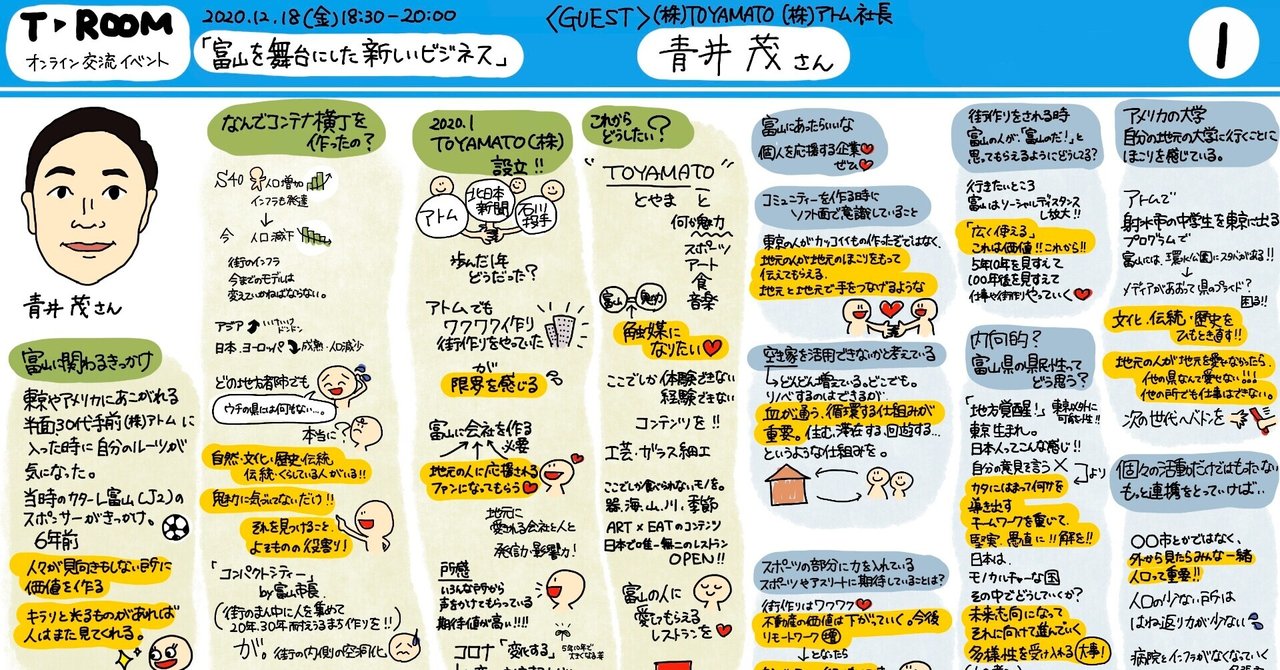 T▶ROOM
オンライン交流イベント
2020.12.18(金)18:30-20:00
「富山を舞台にした新しいビジネス」
〈GUEST〉(株)TOYAMATO (株)アトム社長
青井 茂さん
1
青井 茂さん
富山に関わるきっかけ
東京やアメリカにあこがれる
半面30代手前(株)アトムに
入った時に自分のルーツが
気になった。
当時のカターレ富山(J2)の
スポンサーがきっかけ。
6年前
人々が見向きもしない所に
価値を作る
キラリと光るものがあれば
人はまた見てくれる。
なんでコンテナ横丁を
作ったの?
S40 人口増加
インフラも発達
↓
今 人口減少
街のインフラ
今までのモデルは
変えていかねばならない。
アジア
日本、ヨーロッパ 成熟・人口減少
どの地方都市でも
ウチの県には何もない…。
本当に?
自然・文化・歴史・伝統
伝統・くらしている人がいる!!
魅力に気づいてないだけ!!
それを見つけること、
よそものの役割り!
「コンパクトシティー」
by 富山市長
(街のまん中に人を集めて
20年、30年耐えうるまち作りを!!)
が。街の内側の空洞化
2020.1
TOYAMATO(株)
設立!!
アトム
北日本
新聞
石川
投手
歩んだ1年
どうだった?
アトムでも
ワクワク作り
街作りをやっていた
が
限界を感じる
富山に会社を作る
必要
地元の人に応援される
ファンになってもらう
地元に
愛される会社と人と
発信力・影響力!
所感
いろんな所から
声をかけてもらっている
期待値が高い!!!!
コロナ「変化する」
これから
どうしたい?
"TOYAMATO"
とやま と
何か魅力
スポーツ
アート
食
音楽
富山
魅力
触媒に
なりたい
ここでしか体験できない
経験できない
コンテンツを!!
工芸・ガラス細工
ここでしか食べられないモノを。
器、海、山、川、季節
ART×EATのコンテンツ
日本で唯一無二のレストラン
OPEN!!
富山の人に
愛してもらえる
レストランを
富山にあったらいいな
個人を応援する企業
ぜひ
コミュニティーを作る時に
ソフト面で意識していること
東京の人がカッコイイもの作ったぞではなく、
地元の人が地元のほこりをもって
伝えてもらえる。
地元と地元で手をつなげるような
空き家を活用できないかと考えている
どんどん増えている。どこでも。
リノベするのはできるが、
血が通う、循環する仕組みが
重要。住む、滞在する、回遊する…
というような仕組みを。
スポーツの部分に力を入れている
スポーツやアスリートに期待していることは?
街作りはワクワク
不動産の価値は下がっていく。今後
リモートワーク増
→となったら
街作りをされる時
富山の人が、「富山のだ!」と
思ってもらえるようにどうしてる?
行きたいところ
富山はソーシャルディスタンス
し放大!!
「広く使える」
これは価値!!これから!!
5年10年を見すえて
100年後を見すえて
仕事や街作りやっていく
内向的?
富山県の県民性って
どう思う?
「地方覚醒!」東京以外に
可能性!!
東京生まれ。
日本人ってこんな感じ!!
自分の意見を言う×
より
カタにはまって何かを
導き出す
チームワークを重んじて、
堅実、愚直に!!解を!!
日本は、
モノカルチャーな国
その中でどうしていくか?
未来志向になって
それに向けて進んでいく
多様性を受け入れる 大事!
アメリカの大学
自分の地元の大学に行くことに
ほこりを感じている。
アトムで
射水市の中学生を東京に出る
プログラムで
富山には、環水公園にスタバがある!!
↓
メディアがあおって県のプライド?
困る!!
文化、伝統・歴史を
ひもとき直す!!
地元の人が地元を愛せなかったら、
他の県なんて愛せない!!!
他の所でも仕事はできない。
次の世代へバトンを
個々の活動だけではもったいない
もっと連携をとっていけば…
〇〇市とかではなく、
外から見たらみんな一緒
人口って重要!!
人口の少ない所は
はね返り力が少ない
病院とインフラがなくなっていく